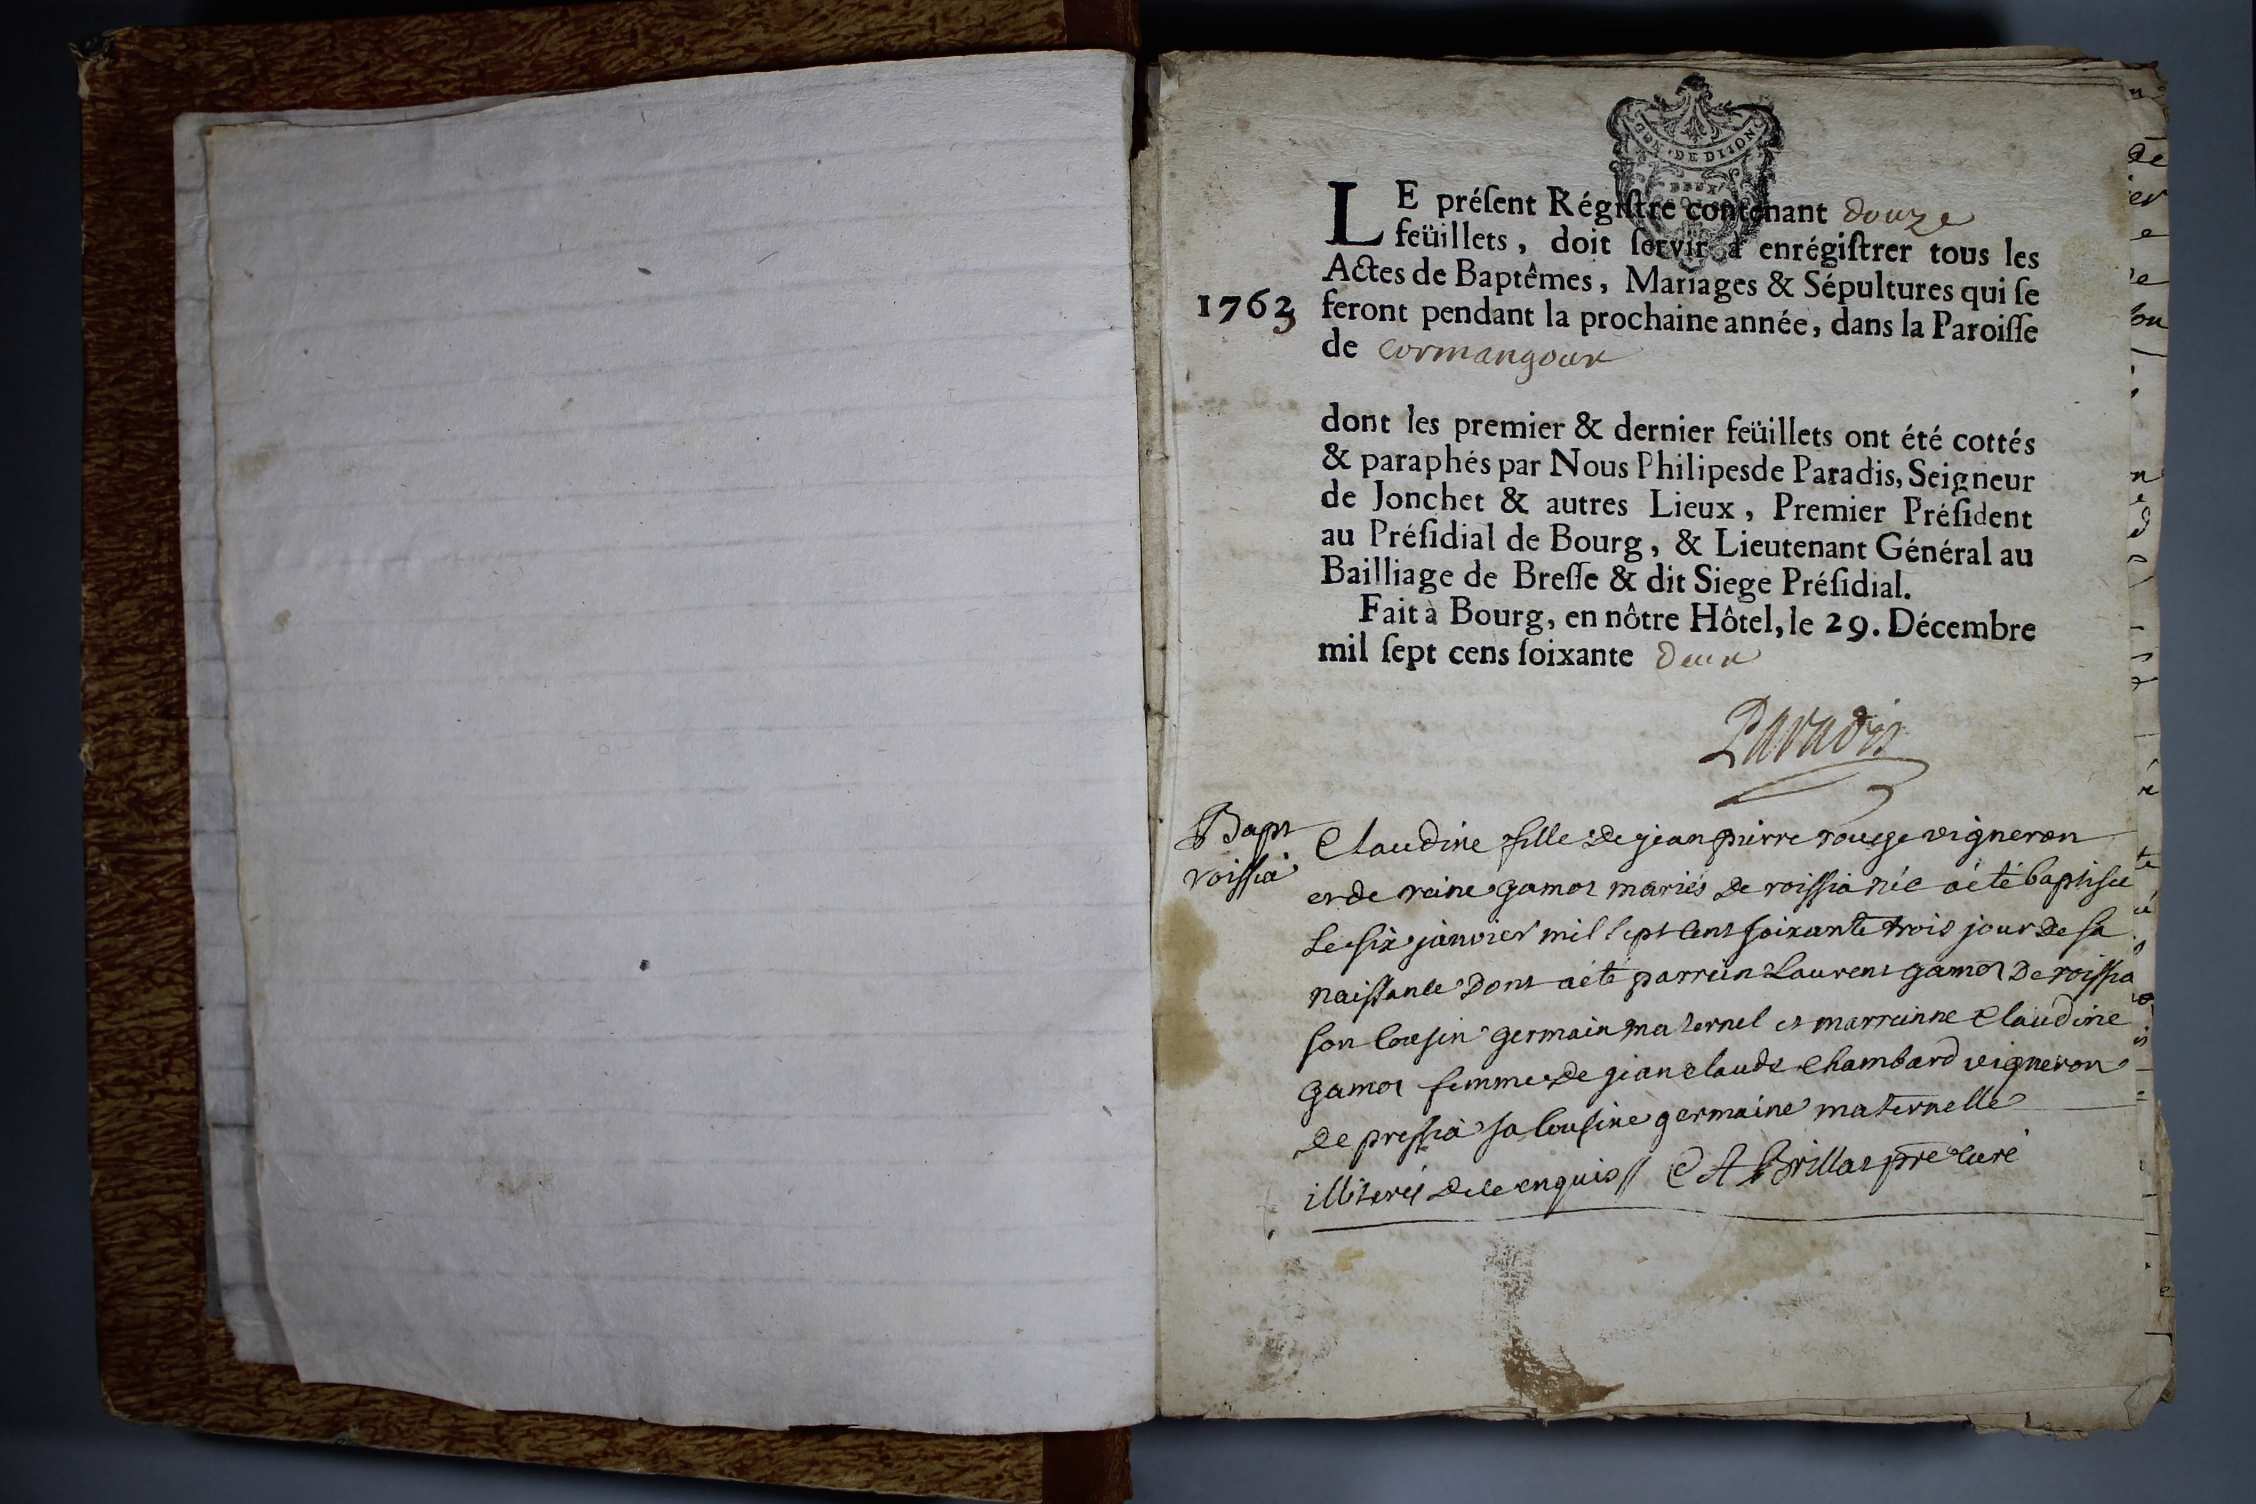 GEN · DE DIJON
DEUX
LE préſent Régiſtre contenant douze
feüillets, doit ſervir à enrégiſtrer tous les
Actes de Baptêmes, Mariages & Sépultures qui ſe
1763 feront pendant la prochaine année, dans la Paroiſſe
de Cormangoux
dont les premier & dernier feüillets ont été cottés
& paraphés par Nous Philipes de Paradis, Seigneur
de Jonchet & autres Lieux, Premier Préſident
au Préſidial de Bourg, & Lieutenant Général au
Bailliage de Breſſe & dit Siege Préſidial.
Fait à Bourg, en nôtre Hôtel, le 29. Décembre
mil ſept cens ſoixante deux
Paradis
Bapt
roissia
Claudine fille de jean pierre rouge vigneron
et de reine gamot mariés de roissia née a été baptisée
le six janvier mil sept cent soixante trois jour de sa
naissance dont a été parrein Laurent gamot de roissia
son cousin germain maternel et marreinne Claudine
gamot femme de jean claude Chambard vigneron
de pressia sa cousine germaine maternelle
illiterés de ce enquis // C A Brillat pre curé